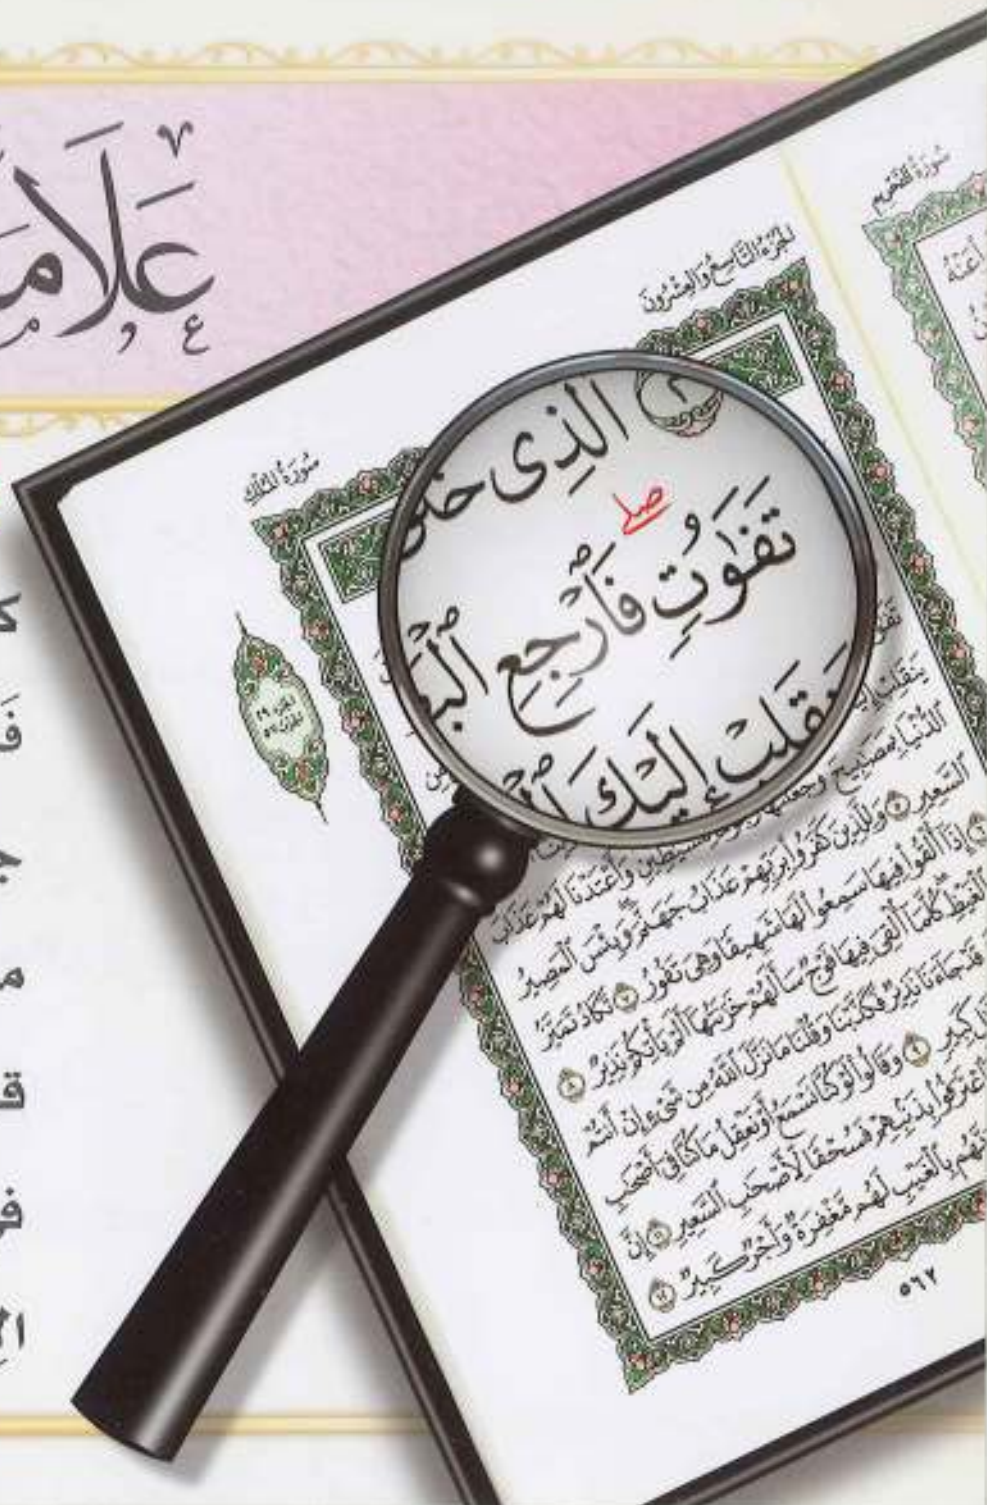 عَلَامَ
سُورَةُ التَّحْرِيمِ
الجُزْءُ التَّاسِعُ وَالعِشْرُونَ
سُورَةُ المُلْكِ
ٱلَّذِى خَلَقَ
صلے
تَفَٰوُتٍ فَٱرْجِعِ ٱلْبَ
يَنقَلِبْ إِلَيْكَ ٱلْ
ٱلدُّنْيَا بِمَصَٰبِيحَ وَجَعَلْنَٰهَا لِّلشَّيَٰطِينِ وَأَعْتَدْنَا لَهُمْ عَذَابَ
ٱلسَّعِيرِ ٥ وَلِلَّذِينَ كَفَرُوا۟ بِرَبِّهِمْ عَذَابُ جَهَنَّمَ وَبِئْسَ ٱلْمَصِيرُ
٦ إِذَآ أُلْقُوا۟ فِيهَا سَمِعُوا۟ لَهَا شَهِيقًا وَهِىَ تَفُورُ ٧ تَكَادُ تَمَيَّزُ
ٱلْغَيْظِ كُلَّمَآ أُلْقِىَ فِيهَا فَوْجٌ سَأَلَهُمْ خَزَنَتُهَآ أَلَمْ يَأْتِكُمْ نَذِيرٌ ٨
قَدْ جَآءَنَا نَذِيرٌ فَكَذَّبْنَا وَقُلْنَا مَا نَزَّلَ ٱللَّهُ مِن شَىْءٍ إِنْ أَنتُمْ
كَبِيرٍ ٩ وَقَالُوا۟ لَوْ كُنَّا نَسْمَعُ أَوْ نَعْقِلُ مَا كُنَّا فِىٓ أَصْحَٰبِ
ٱعْتَرَفُوا۟ بِذَنۢبِهِمْ فَسُحْقًا لِّأَصْحَٰبِ ٱلسَّعِيرِ ١١ إِنَّ
بِٱلْغَيْبِ لَهُم مَّغْفِرَةٌ وَأَجْرٌ كَبِيرٌ ١٢
٥٦٢